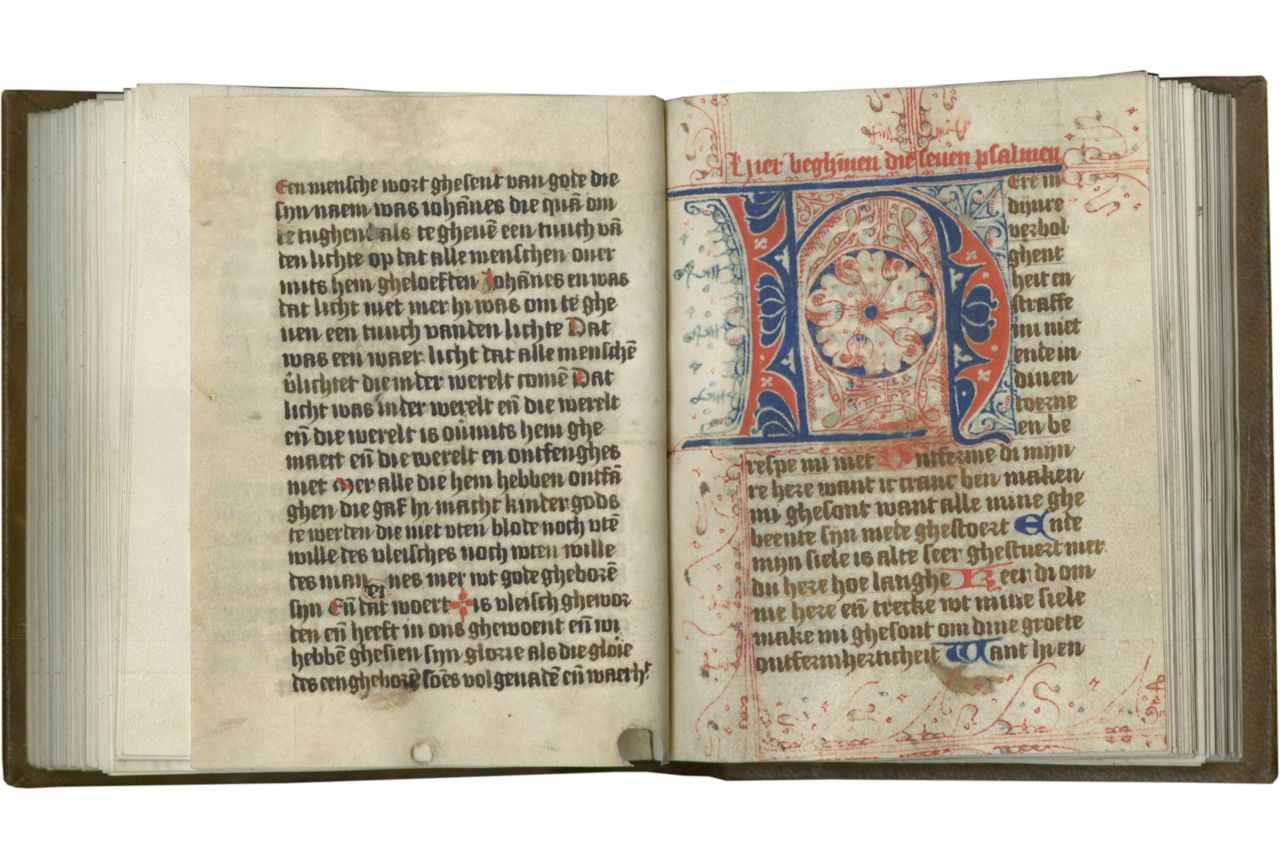 Een mensche wort ghesent van gode die
sijn naem was iohānes die quā om
te tughen als te gheuē een tuuch vā
den lichte op dat alle menschen ouer
mits hem gheloeften Johānes en was
dat licht niet mer hi was om te ghe
uen een tuuch vanden lichte Dat
was een waer licht dat alle menschē
v̄lichtet die in der werelt comē Dat
licht was in der werelt eñ die werelt
eñ die werelt is oūmits hem ghe
maect eñ die werelt en ontfenghes
niet Mer alle die hem hebben ontfā
ghen die gaf hi macht kinder gods
te werden die niet vten blode noch vtē
wille des vleisches noch wten wille
des mannes mer wt gode gheborē
sijn Eñ dat woert is vleisch ghewor
den eñ heeft in ons ghewoent eñ wi
hebbē ghesien sijn glorie als die glorie
des eengheborē soēs vol genadē eñ waerh
Hier beghīnen die seuen psalmen
HEre in
dijnre
verbol
ghent
heit en
straffe
mi niet
ende in
dinen
toerne
en be
respe mi niet Ontferme di mijn
re here want ic cranc ben maken
mi ghesont want alle mine ghe
beente sijn mede ghestoert Ende
mijn siele is alte seer ghestuert mer
du here hoe langhe Keer di om
me here eñ trecke wt mine siele
make mi ghesont om dine groete
ontfermherticheit Want hi en